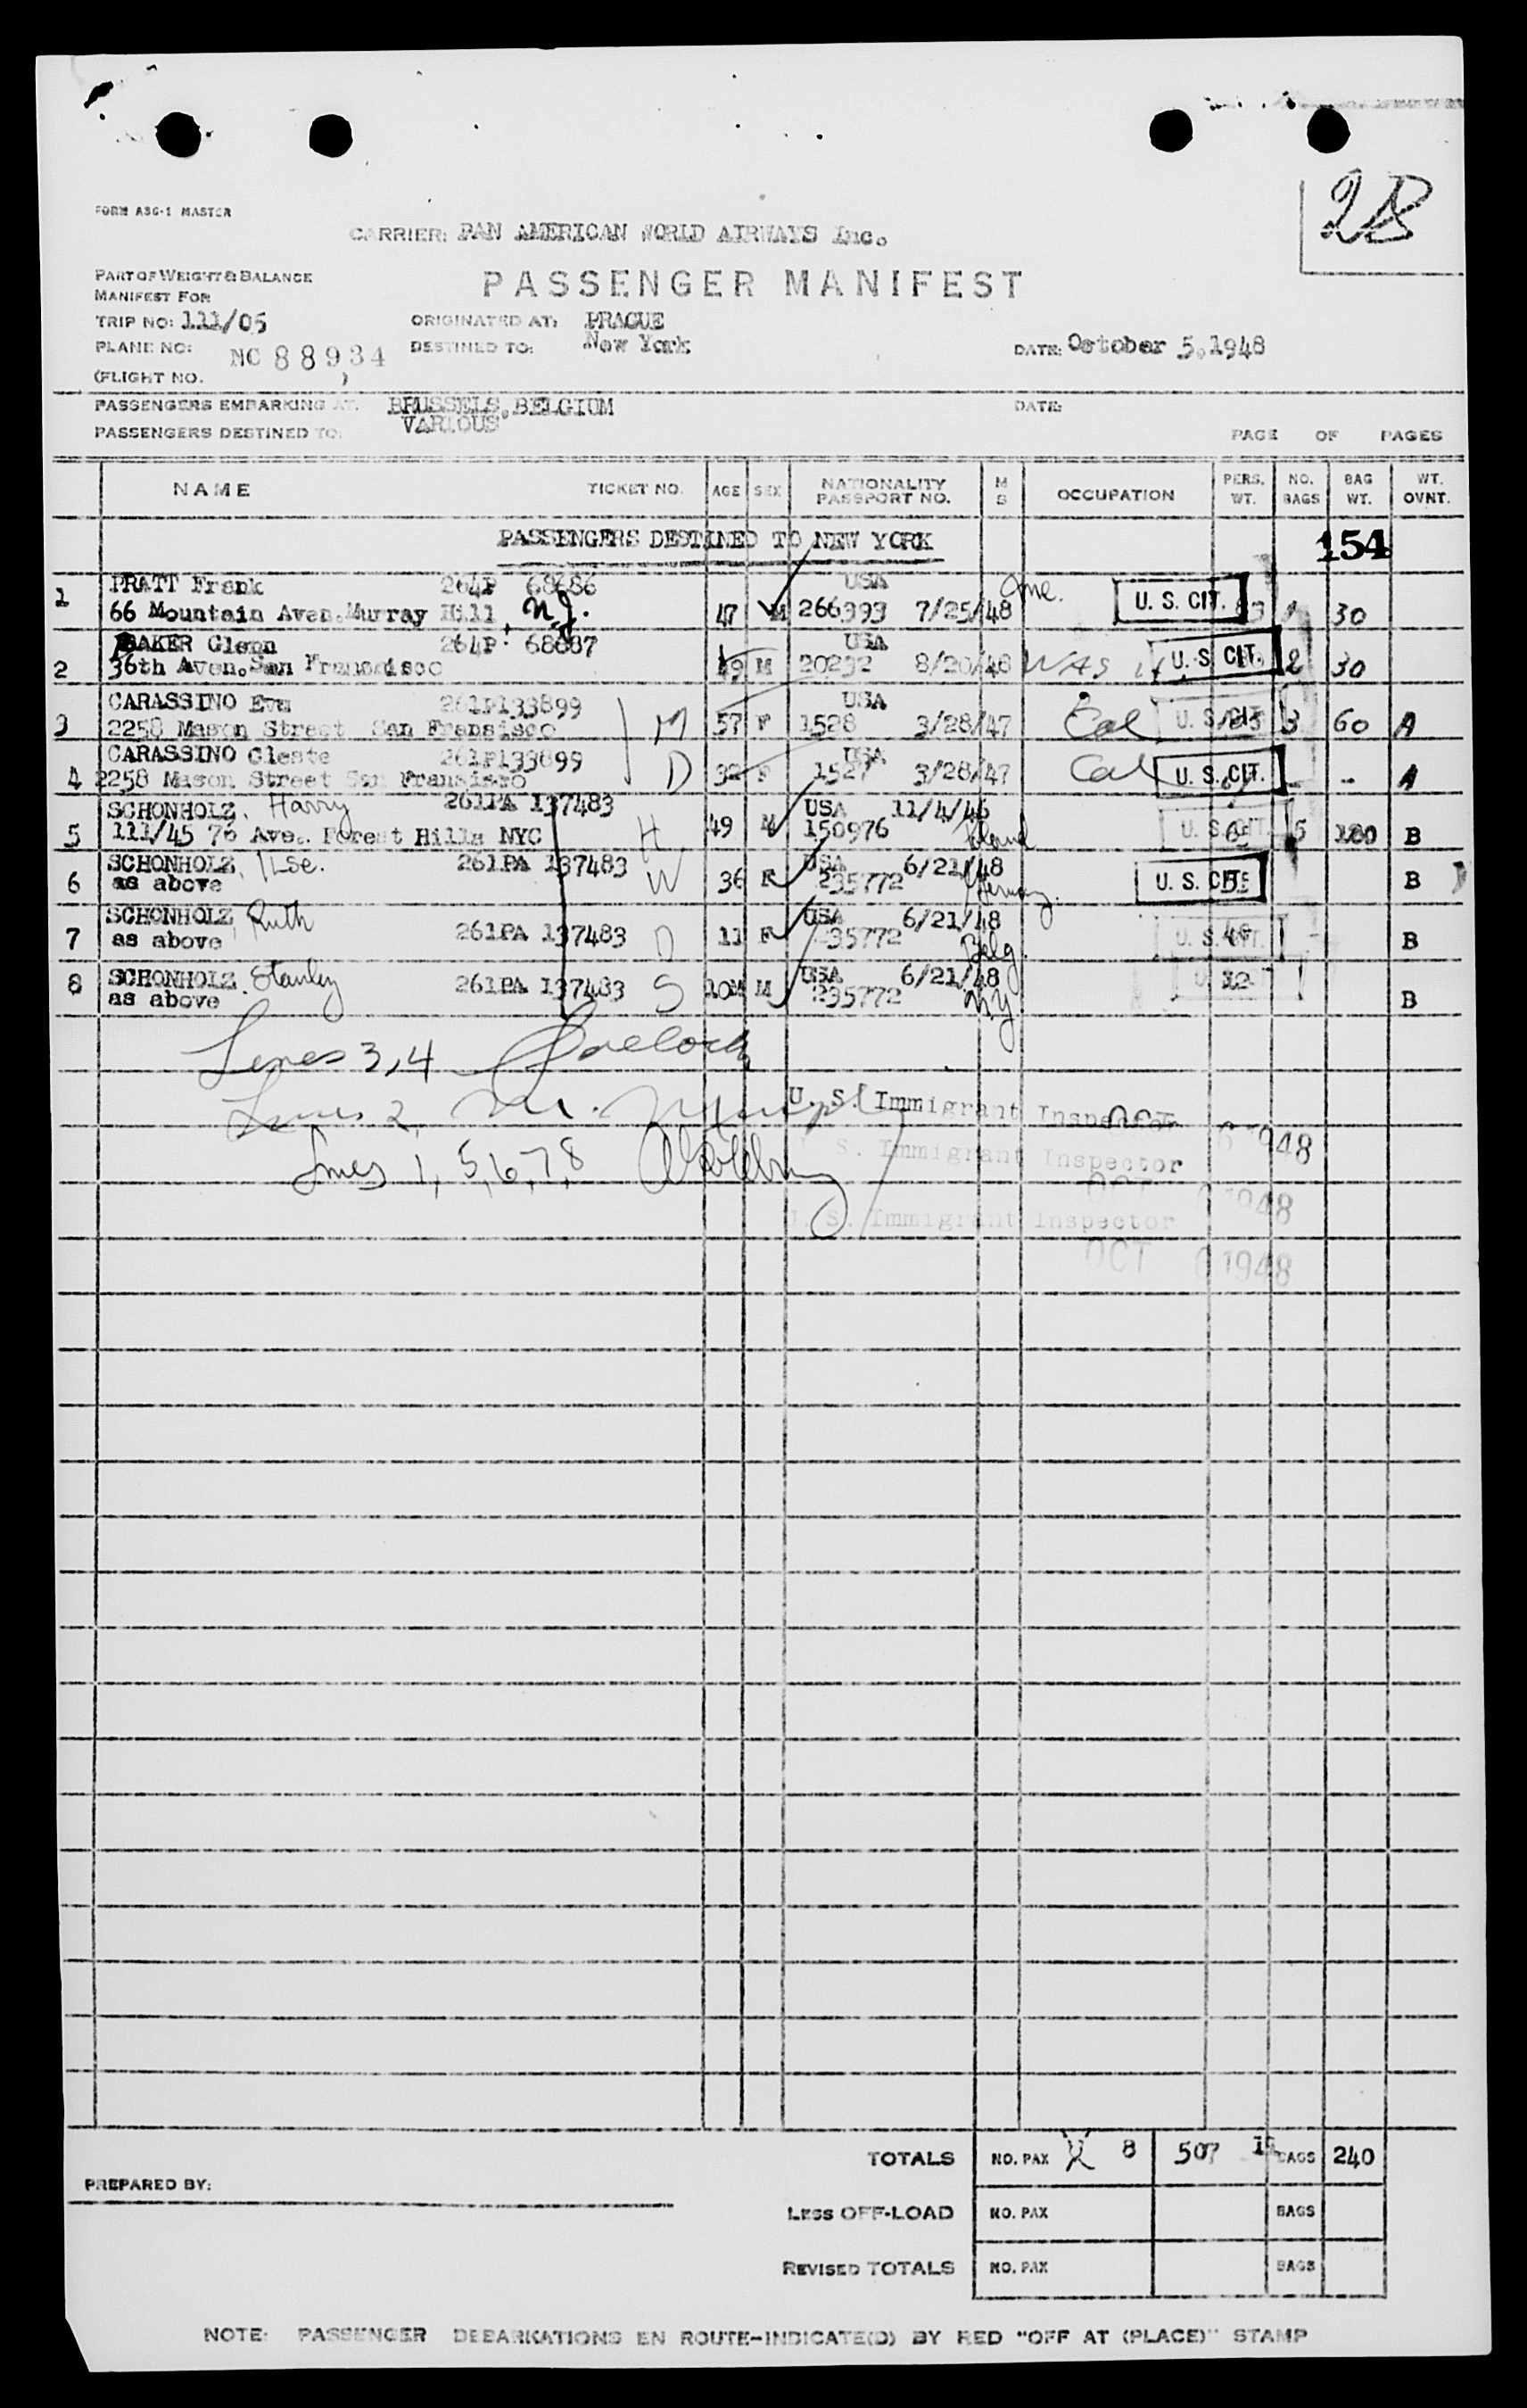 28
FORM ASG-1 MASTER
CARRIER: PAN AMERICAN WORLD AIRWAYS Inc.
PART OF WEIGHT & BALANCE
MANIFEST FOR
PASSENGER MANIFEST
TRIP NO: 111/05 ORIGINATED AT: PRAGUE
PLANE NO: NC 88934 DESTINED TO: New York DATE: October 5.1948
(FLIGHT NO. )
PASSENGERS EMBARKING AT. BRUSSELS.BELGIUM DATE:
PASSENGERS DESTINED TO: VARIOUS
PAGE OF PAGES
NAME TICKET NO. AGE SEX NATIONALITY PASSPORT NO. M S OCCUPATION PERS. WT. NO. BAGS BAG WT. WT. OVNT.
PASSENGERS DESTINED TO NEW YORK 154
1 PRATT Frank 264P 68686 USA
66 Mountain Aven.Murray Hill, N.J. 47 M 266393 7/25/48 U. S. CIT. 1 30
BAKER Glenn 264P 68687 USA
2 36th Aven.San Francdisco 49 M 20232 8/20/48 U. S. CIT. 2 30
CARASSINO Eva 261P133899 USA
3 2258 Mason Street San Fransisco M 57 F 1528 3/28/47 Cal U. S. CIT. 3 60 A
CARASSINO Cleste 261P133899 USA
4 2258 Mason Street San Fransisco D 32 F 1527 3/28/47 Cal U. S. CIT. - -- A
SCHONHOLZ, Harry 261PA 137483 USA 11/4/46
5 111/45 76 Ave. Forest Hills NYC H 49 M 150976 U. S. CIT. 5 B
SCHONHOLZ, Ilse. 261PA 137483 USA 6/21/48
6 as above W 36 F 235772 Germany. U. S. CIT. B
SCHONHOLZ, Ruth USA 6/21/48
7 as above 261PA 137483 D 11 F 235772 Belg. U. S. CIT. B
8 SCHONHOLZ. Stanley 261PA 137483 S 10M M USA 6/21/48
as above 235772 NY 12 B
Lines 3,4
Lines 2, M.
U. S. Immigrant Inspector OCT 6 1948
Lines 1, 5,6,7,8
U. S. Immigrant Inspector
OCT 6 1948
U. S. Immigrant Inspector
OCT 6 1948
TOTALS NO. PAX 8 507 BAGS 240
PREPARED BY:
LESS OFF-LOAD NO. PAX BAGS
REVISED TOTALS NO. PAX BAGS
NOTE: PASSENGER DEBARKATIONS EN ROUTE-INDICATE(D) BY RED "OFF AT (PLACE)" STAMP